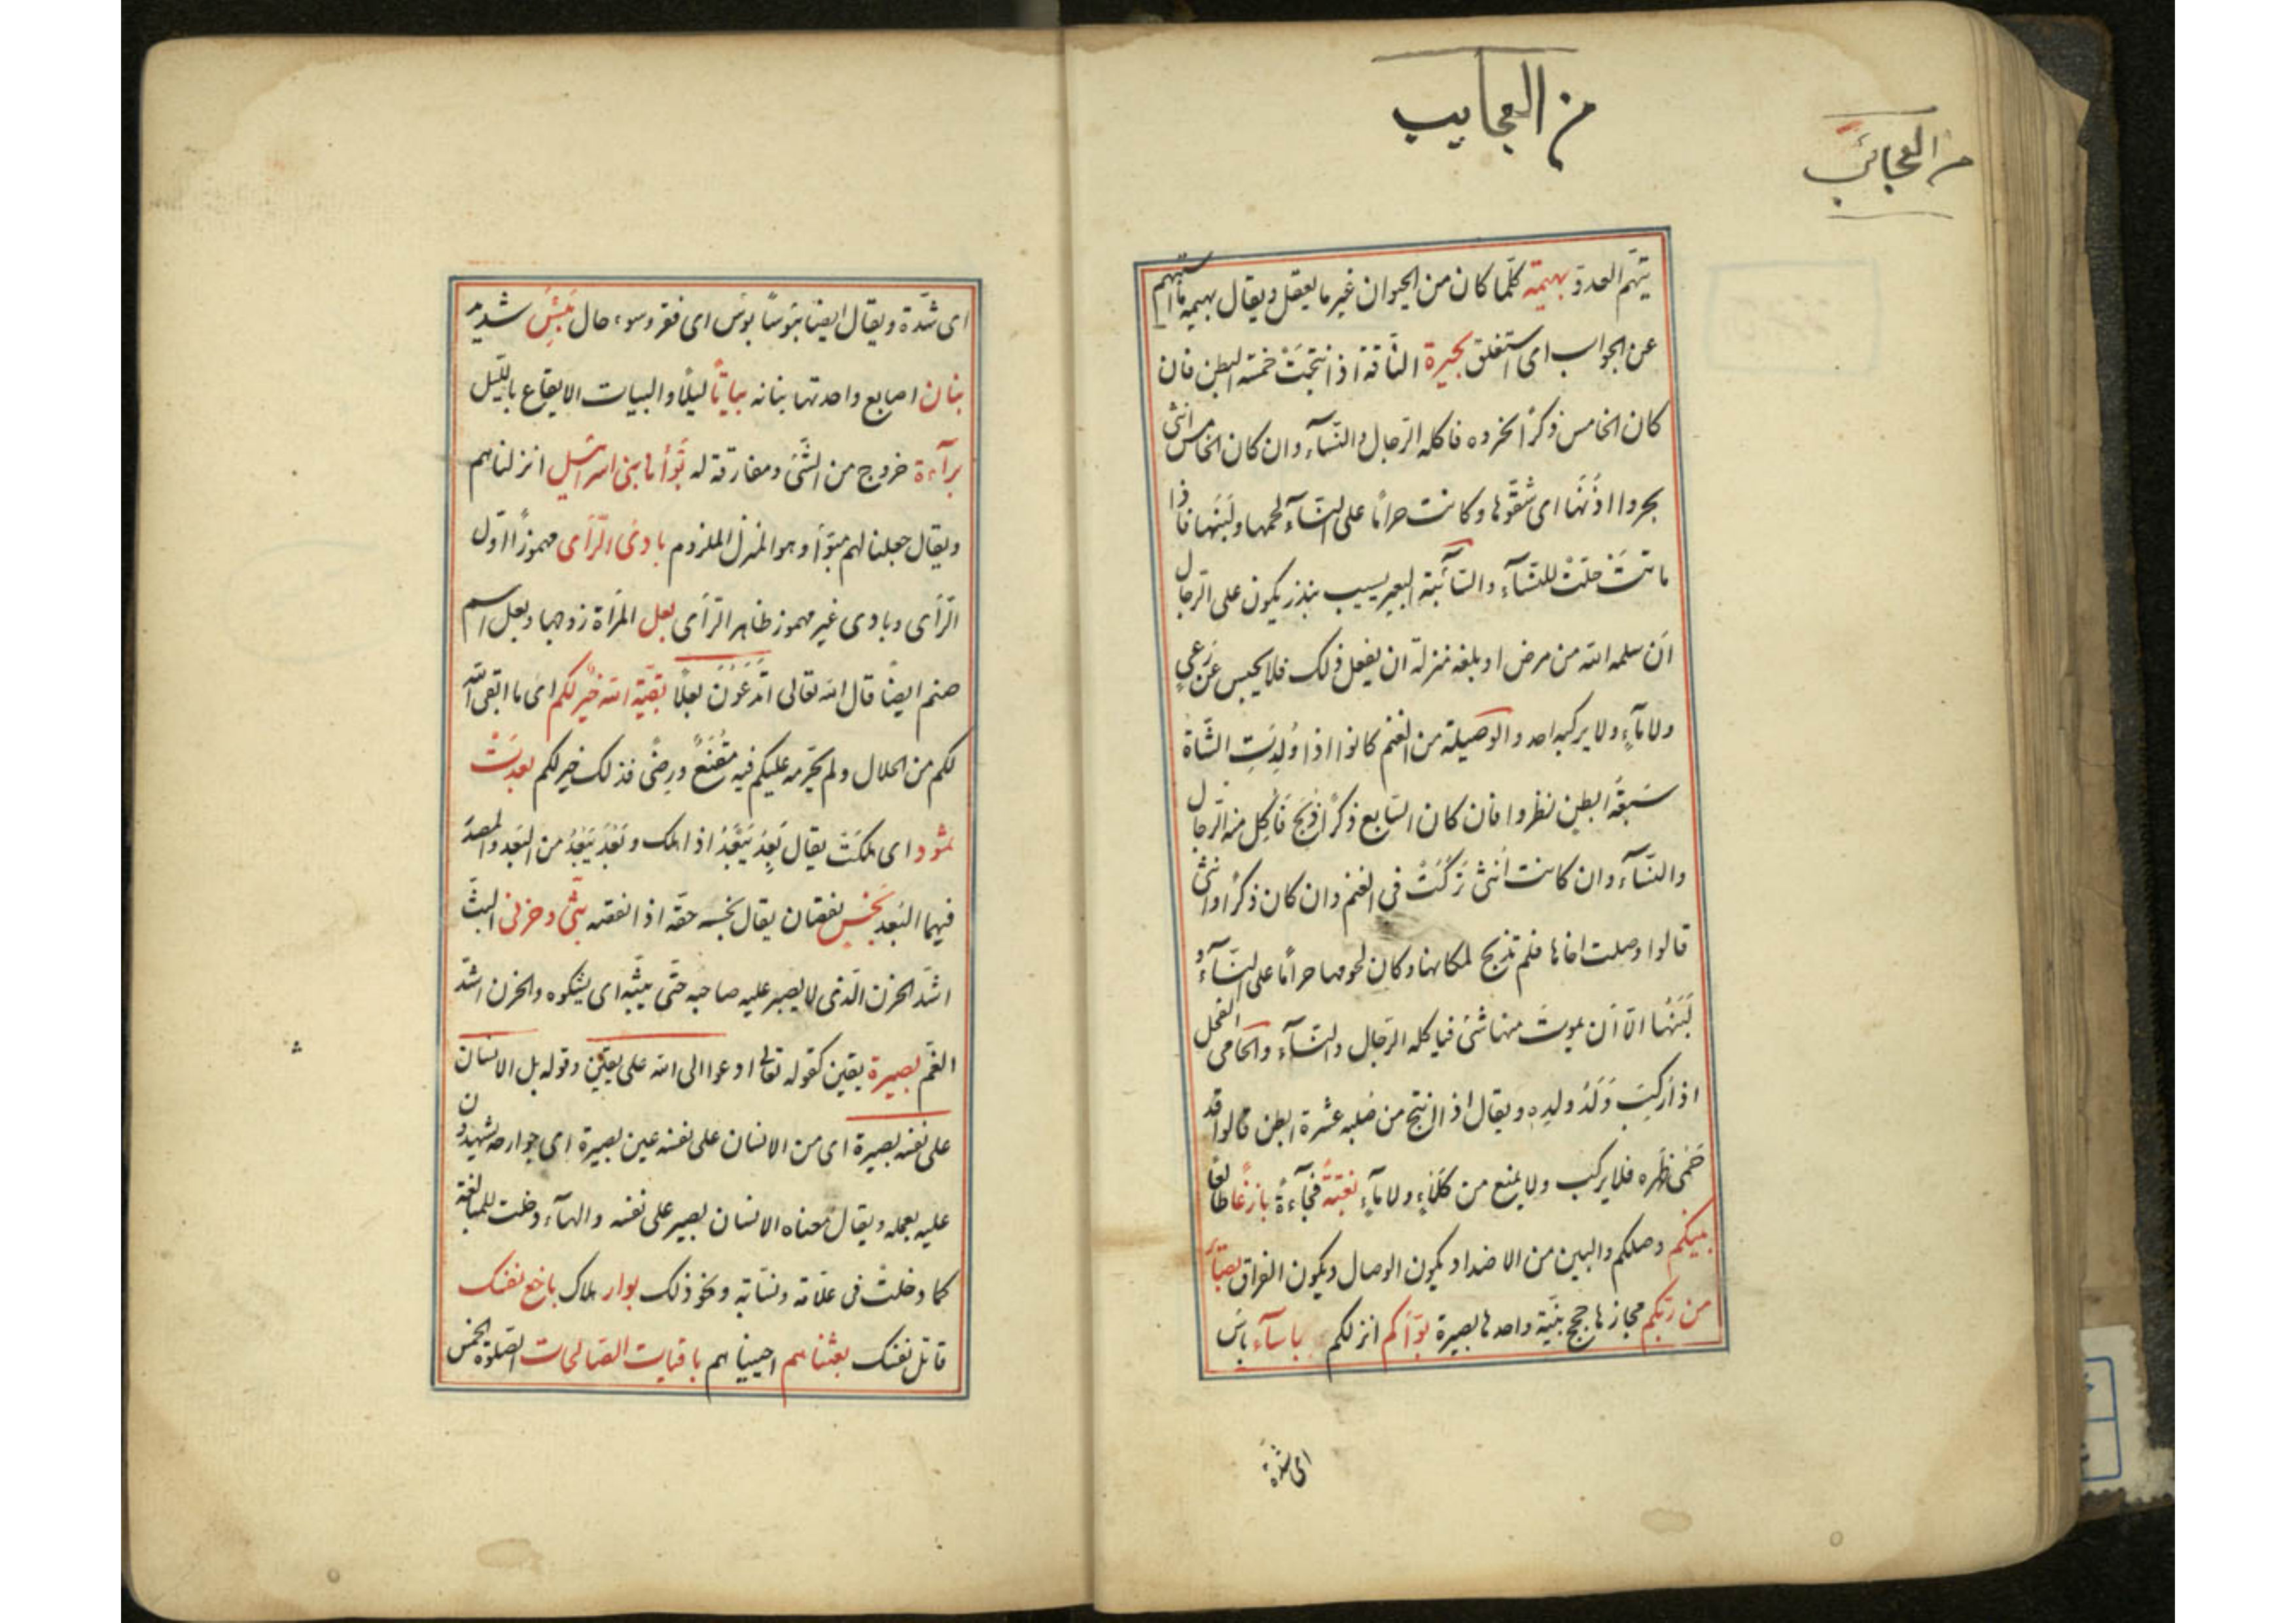 من العجايب
من العجائب
يتهم العدوّ بهيمة كلّما كان من الحيوان غير ما يعقل ويقال بهيمة ما استبهم
عن الجواب اى استغلق بحيرة النّاقة اذا نتجت خمسة ابطن فان
كان الخامس ذكرًا نحروه فاكله الرّجال والنّسآء وان كان الخامس انثى
بحروا اذنها اى شقّوها وكانت حرامًا على النّسآء لحمها ولبنها فاذا
ماتت حلّت للنّسآء والسّآئبة البعير يسيب بنذر يكون على الرّجل
ان سلمه الله من مرض او بلغه منزلة ان يفعل ذلك فلا يحبس عن رعي
ولا مآءٍ ولا يركبه احد والوصيلة من الغنم كانوا اذا ولدت الشّاة
سبعة ابطن نظروا فان كان السّابع ذكرًا ذبح فأكل منه الرّجال
والنّسآء وان كانت انثى تركت فى الغنم وان كان ذكرًا وانثى
قالوا وصلت اخاها فلم تذبح لمكانها وكان لحومها حرامًا على النّسآء و
لبنها الّا ان يموت منها شئ فيأكله الرّجال والنّسآء والحامى الفحل
اذا ركب ولد ولده ويقال اذا نتج من صلبه عشرة ابطن قالوا قد
حمى ظهره فلا يركب ولا يمنع من كلاءٍ ولا مآءٍ بغتةً فجآءةً بازغًا طالعًا
بينكم وصلكم والبين من الاضداد يكون الوصال ويكون الفراق بصآئر
من ربّكم مجازها حجج بيّنة واحدها بصيرة بوّأكم انزلكم بأسآء بأس
اى شدّة
اى شدّة ويقال ايضا بؤسًا بؤس اى فقر وسوء حال بئيس شديد
بنان اصابع واحدتها بنانه بياتًا ليلًا والبيات الايقاع بالّليل
برآءة خروج من الشّئ ومفارقة له بوّأنا بنى اسرائيل انزلناهم
ويقال جعلنا لهم مبوّأ وهو المنزل الملزوم بادئ الرّأى مهموزًا اوّل
الرّأى وبادى غير مهموز ظاهر الرّأى بعل المرأة زوجها وبعل اسم
صنم ايضًا قال الله تعالى أتدعون بعلًا بقيّة الله خير لكم اى ما ابقى الله
لكم من الحلال ولم يحرّمه عليكم فيه مقنع ورضًى فذلك خير لكم بعدت
ثمود اى هلكت يقال بعد يبعد اذا هلك وبعد يبعد من البعد والمصدر
فيهما البعد بخس نقصان يقال بخسه حقّه اذا نقصه بثّى وحزنى البثّ
اشدّ الحزن الّذى لا يصبر عليه صاحبه حتّى يبثّه اى يشكوه والحزن اشدّ
الغمّ بصيرة يقين كقوله تعالى ادعوا الى الله على يقين وقوله بل الانسان
على نفسه بصيرة اى من الانسان على نفسه عين بصيرة اى جوارحه يشهدون
عليه بعمله ويقال معناه الانسان بصير على نفسه والهآء دخلت للمبالغة
كما دخلت فى علّامة ونسّابة ونحو ذلك بوار هلاك باخع نفسك
قاتل نفسك بعثناهم احييناهم باقيات الصّالحات الصّلوة الخمس